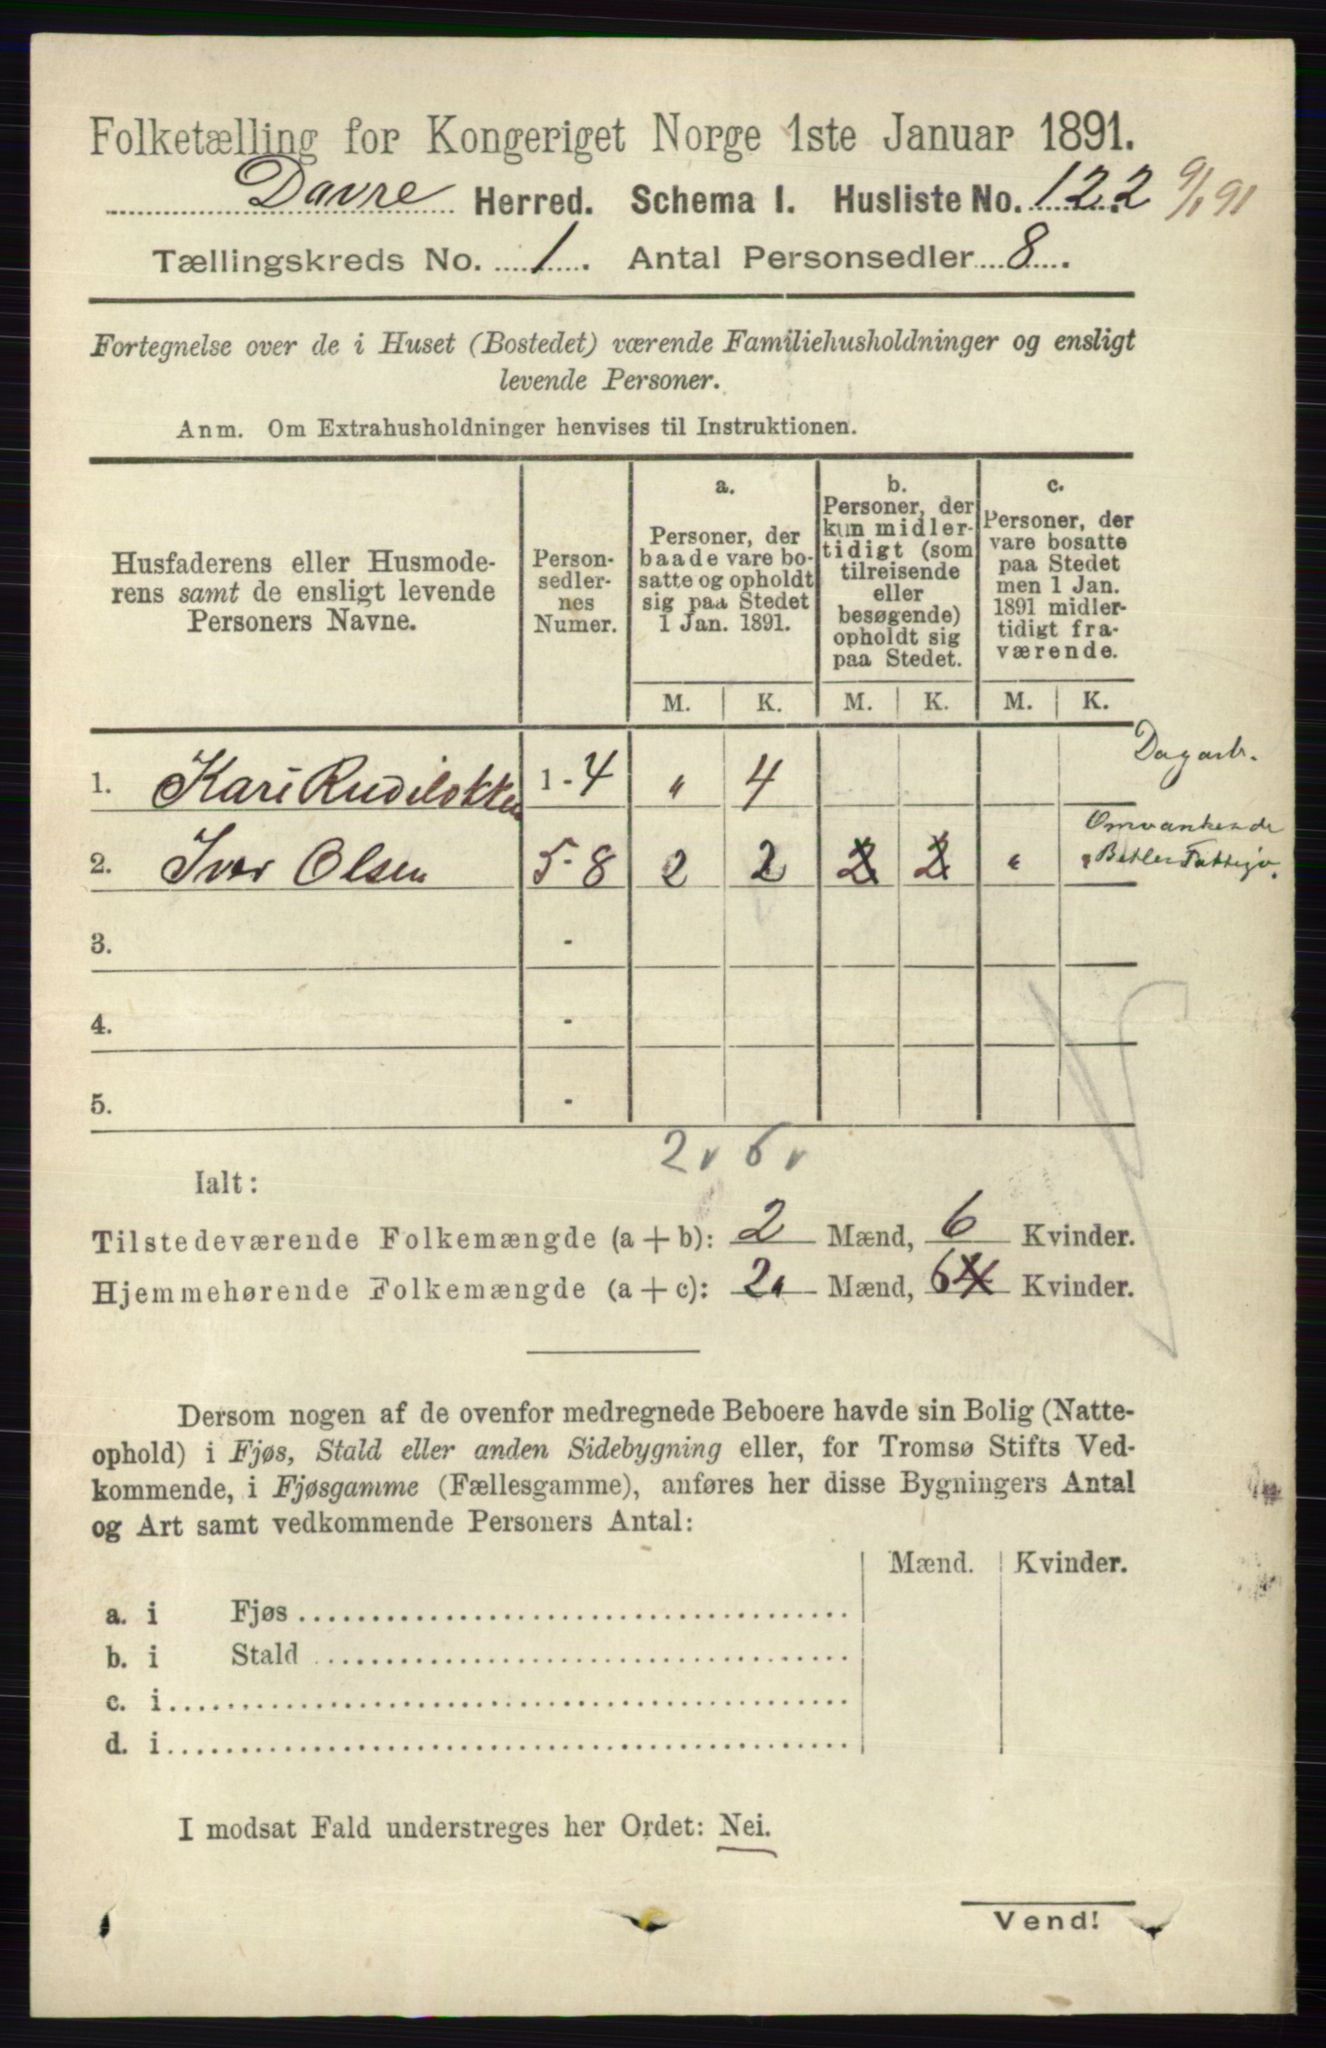 Folketælling for Kongeriget Norge 1ste Januar 1891.
Davre Herred. Schema I. Husliste No. 122 9/1 91
Tællingskreds No. 1. Antal Personsedler 8.
Fortegnelse over de i Huset (Bostedet) værende Familiehusholdninger og ensligt
levende Personer.
Anm. Om Extrahusholdninger henvises til Instruktionen.
Husfaderens eller Husmode-
rens samt de ensligt levende
Personers Navne.
Person-
sedler-
nes
Numer.
a.
Personer, der
baade vare bo-
satte og opholdt
sig paa Stedet
1 Jan. 1891.
b.
Personer, der
kun midler-
tidigt (som
tilreisende
eller
besøgende)
opholdt sig
paa Stedet.
c.
Personer, der
vare bosatte
paa Stedet
men 1 Jan.
1891 midler-
tidigt fra-
værende.
M. K. M. K. M. K.
1. Kari Rudiløkken 1 - 4 " 4 Dagarb.
Omvankende
2. Iver Olsen 5 - 8 2 2 2 2 " " Betler
3. -
4. -
5. -
2 6
Ialt:
Tilstedeværende Folkemængde (a + b): 2 Mænd, 6 Kvinder.
Hjemmehørende Folkemængde (a + c): 2 Mænd, 6 4 Kvinder.
Dersom nogen af de ovenfor medregnede Beboere havde sin Bolig (Natte-
ophold) i Fjøs, Stald eller anden Sidebygning eller, for Tromsø Stifts Ved-
kommende, i Fjøsgamme (Fællesgamme), anføres her disse Bygningers Antal
og Art samt vedkommende Personers Antal:
Mænd. Kvinder.
a. i Fjøs
b. i Stald
c. i
d. i
I modsat Fald understreges her Ordet: Nei.
Vend!